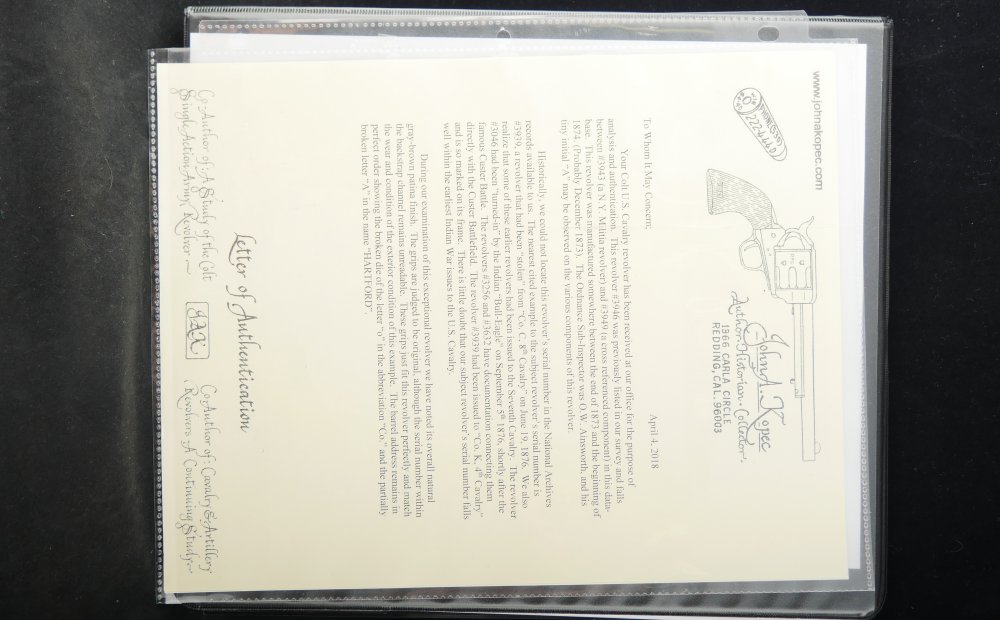 www.johnakopec.com
PHONE (530)
222-4440
John A. Kopec
Author • Historian • Collector
1366 CARLA CIRCLE
REDDING, CAL. 96003
April 4, 2018
To Whom It May Concern;
Your Colt U.S. Cavalry revolver has been received at our office for the purpose of
analysis and authentication. This revolver #3946 was previously listed in our survey and falls
between #3945 (a N.Y. Militia revolver) and #3949 (a cross referenced component) in this data-
base. This revolver was manufactured somewhere between the end of 1873 and the beginning of
1874. (Probably December 1873). The Ordnance Sub-Inspector was O.W. Ainsworth, and his
tiny initial "A" may be observed on the various components of this revolver.
Historically, we could not locate this revolver's serial number in the National Archives
records available to us. The nearest cited example to the subject revolver's serial number is
#3939, a revolver that had been "stolen" from "Co. C, 8th Cavalry" on June 19, 1876. We also
realize that some of these earlier revolvers had been issued to the Seventh Cavalry. The revolver
#3046 had been "turned-in" by the Indian "Bull-Eagle" on September 5th 1876, shortly after the
famous Custer Battle. The revolvers #3256 and #3632 have documentation connecting them
directly with the Custer Battlefield. The revolver #3939 had been issued to "Co. K, 4th Cavalry"
and is so marked on its frame. There is little doubt that our subject revolver's serial number falls
well within the earliest Indian War issues to the U.S. Cavalry.
During our examination of this exceptional revolver we have noted its overall natural
gray-brown patina finish. The grips are judged to be original, although the serial number within
the backstrap channel remains unreadable. These grips just fit this revolver perfectly and match
the wear and condition of the exterior condition of this example. The barrel address remains in
perfect order showing the broken die of the letter "o" in the abbreviation "Co." and the partially
broken letter "A" in the name "HARTFORD".
Letter of Authentication
Co-Author of A Study of the Colt
Single Action Army Revolver
JAK
Co-Author of Cavalry & Artillery
Revolvers • A Continuing Study